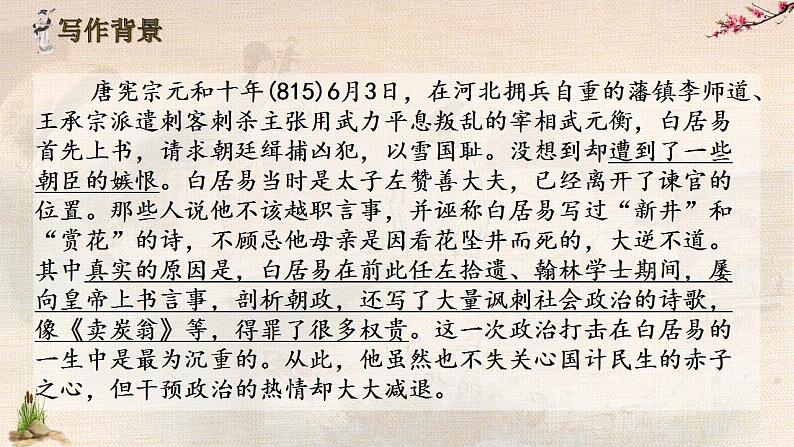 写作背景
唐宪宗元和十年(815)6月3日，在河北拥兵自重的藩镇李师道、
王承宗派遣刺客刺杀主张用武力平息叛乱的宰相武元衡，白居易
首先上书，请求朝廷缉捕凶犯，以雪国耻。没想到却遭到了一些
朝臣的嫉恨。白居易当时是太子左赞善大夫，已经离开了谏官的
位置。那些人说他不该越职言事，并诬称白居易写过“新井”和
“赏花”的诗，不顾忌他母亲是因看花坠井而死的，大逆不道。
其中真实的原因是，白居易在前此任左拾遗、翰林学士期间，屡
向皇帝上书言事，剖析朝政，还写了大量讽刺社会政治的诗歌，
像《卖炭翁》等，得罪了很多权贵。这一次政治打击在白居易的
一生中是最为沉重的。从此，他虽然也不失关心国计民生的赤子
之心，但干预政治的热情却大大减退。